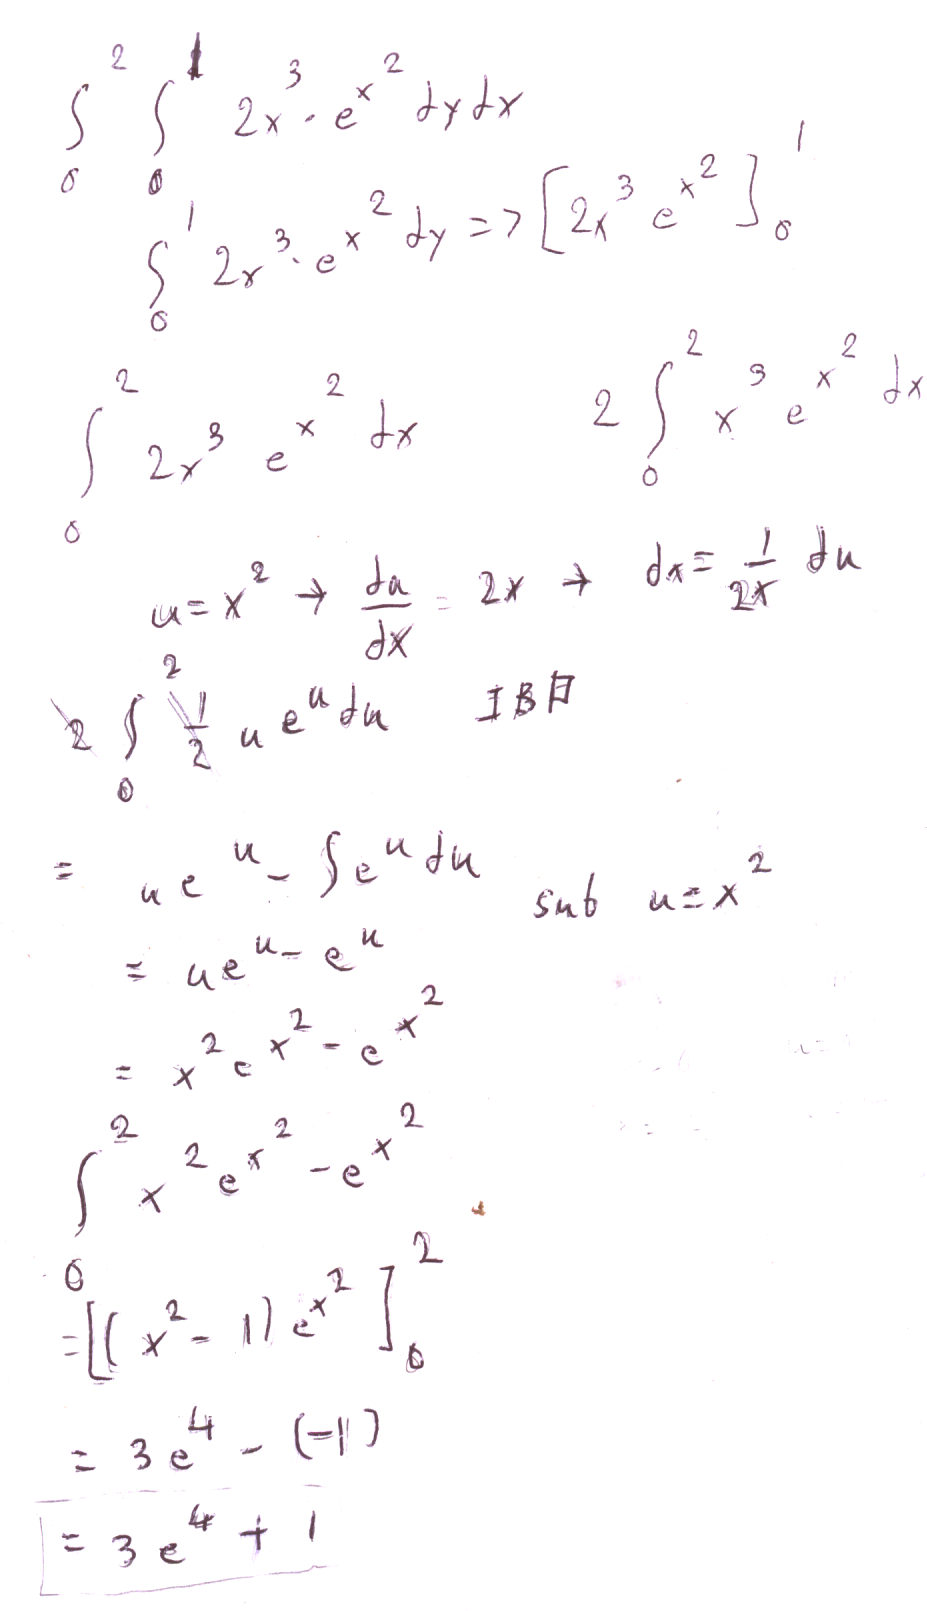 ∫₀² ∫₀¹ 2x³ · e^{x²} dy dx
∫₀¹ 2x³ · e^{x²} dy => [2x³ e^{x²}]₀¹
∫₀² 2x³ e^{x²} dx    2 ∫₀² x³ e^{x²} dx
u = x² → du/dx = 2x → dx = 1/2x du
2 ∫₀² 1/2 u e^u du    IBP
= u e^u - ∫ e^u du    sub u = x²
= u e^u - e^u
= x² e^{x²} - e^{x²}
∫₀² x² e^{x²} - e^{x²}
= [(x² - 1) e^{x²}]₀²
= 3e⁴ - (-1)
= 3e⁴ + 1